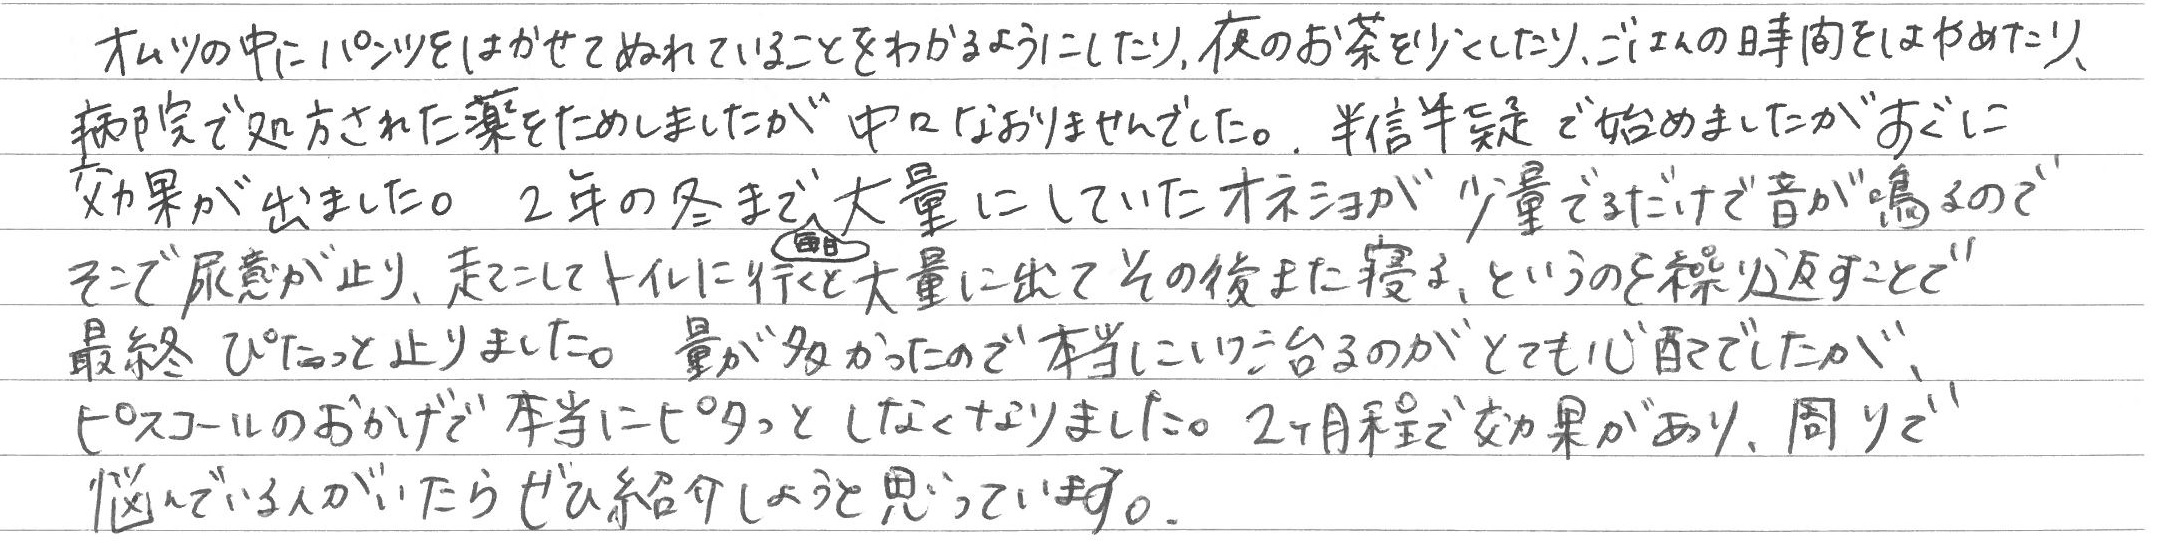 オムツの中にパンツをはかせてぬれていることをわかるようにしたり、夜のお茶を少くしたり、ごはんの時間をはやめたり、
病院で処方された薬をためしましたが中々なおりませんでした。半信半疑で始めましたがすぐに
効果が出ました。2年の冬まで毎日大量にしていたオネショが少量でるだけで音が鳴るので
そこで尿意が止り、走こしてトイレに行くと大量に出てその後また寝る、というのを繰り返すことで
最終ぴたっと止りました。量が多かったので本当に治るのがとても心配でしたが、
ピスコールのおかげで本当にピタっとしなくなりました。2ヶ月程で効果があり、周りで
悩んでいる人がいたらぜひ紹介しようと思っています。